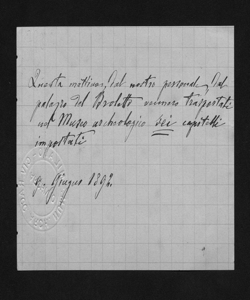 Questa mattina, dal nostro personale, dal
palazzo del Broletto vennero trasportati
nel Museo archeologico sei capitelli
importati
9. Giugno 1892.